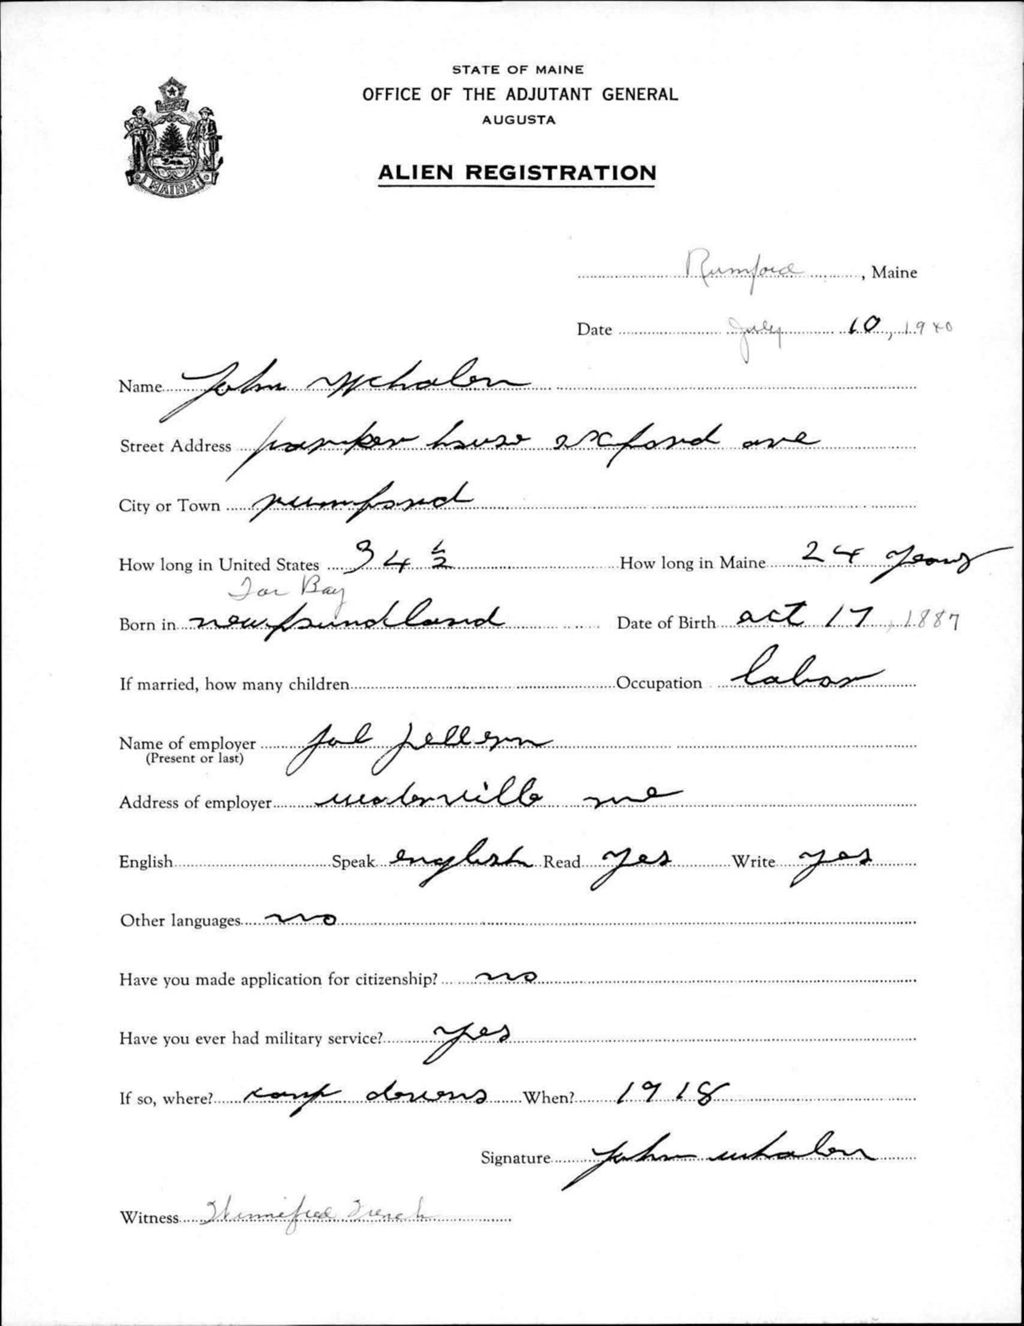 STATE OF MAINE
OFFICE OF THE ADJUTANT GENERAL
AUGUSTA
ALIEN REGISTRATION
MAINE
Rumford, Maine
Date July 10, 1940
Name John Whalen
Street Address parker house oxford ave
City or Town rumford
How long in United States 34 1/2 How long in Maine 24 years
Tor Bay
Born in newfoundland Date of Birth oct 17, 1887
If married, how many children Occupation labor
Name of employer
(Present or last)
Address of employer waterville me
English Speak english Read yes Write yes
Other languages no
Have you made application for citizenship? no
Have you ever had military service? yes
If so, where? camp devens When? 1918
Signature john whalen
Witness Winnifred French